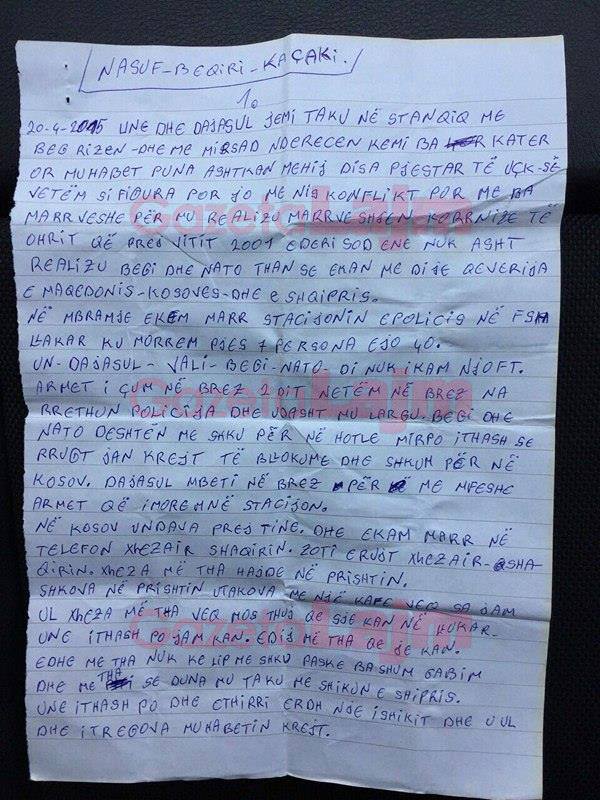 NASUF-BEQIRI-KAÇAKI.
1.
20-4-2015 UNE DHE DAJASUL JEMI TAKU NË STANQIQ ME
BEG RIZEN-DHE ME MIRSAD NDERECEN KEMI BA KATER
OR MUHABET PUNA ASHTKAN MEHIJ DISA PJESTAR TË UÇK-SË
VETËM SI FIGURA POR JO ME NIS KONFLIKT POR ME BA
MARRVESHE PËR MU REALIZU MARRVESHJEN KORRNIZE TË
OHRIT QË PREJ VITIT 2001 EDERISOD ENE NUK ASHT
REALIZU BEGI DHE NATO THAN SE EKAN ME DIJE QEVERIJA
E MAQEDONIS-KOSOVES-DHE E SHQIPRIS.
NË MBRAMJE EKEM MARR STACIJONIN EPOLICIS NË FSH
LLAKAR KU MORREM PJES 7 PERSONA EJO 40.
UN-DAJASUL-VALI-BEGI-NATO-DI NUK IKAM NJOFT.
ARMET I ÇUM NË BREZ 2 DIT NETËM NË BREZ NA
RRETHUN POLICIJA DHE UDASHT MU LARGU. BEGI DHE
NATO DESHTËN ME SHKU PËR NË HOTLE MIRPO ITHASH SE
RRUGT JAN KREJT TË BLLOKUME DHE SHKUM PËR NË
KOSOV. DAJASUL MBETI NË BREZ PËR ME MPESHE
ARMET QË IMOREMNË STACIJON.
NË KOSOV UNDAVA PREJ TINE. DHE EKAM MARR NË
TELEFON XHEZAIR SHAQIRIN. ZOTI ERUJT XHEZAIR-SHA-
QIRIN. XHEZA MË THA HAJDE NË PRISHTIN.
SHKOVA NË PRISHTIN UTAKOVA ME NJË KAFE VEQ SA JAM
UL XHEZA MË THA VEQ MOS THUJ QE SJE KAN NË LLUKAR-
UNE ITHASH PO JAM KAN. EDIJ MË THA QE JE KAN.
EDHE ME THA NUK KE LIP ME SHKU PASKE BA SHUM GABIM
DHE ME THA SE DUNA MU TAKU ME SHIKUN E SHIPRIS.
UNE ITHASH PO DHE ETHIRRI ERDH NJE ISHIKIT DHE U UL
DHE ITREGOVA MUHABETIN KREJT.